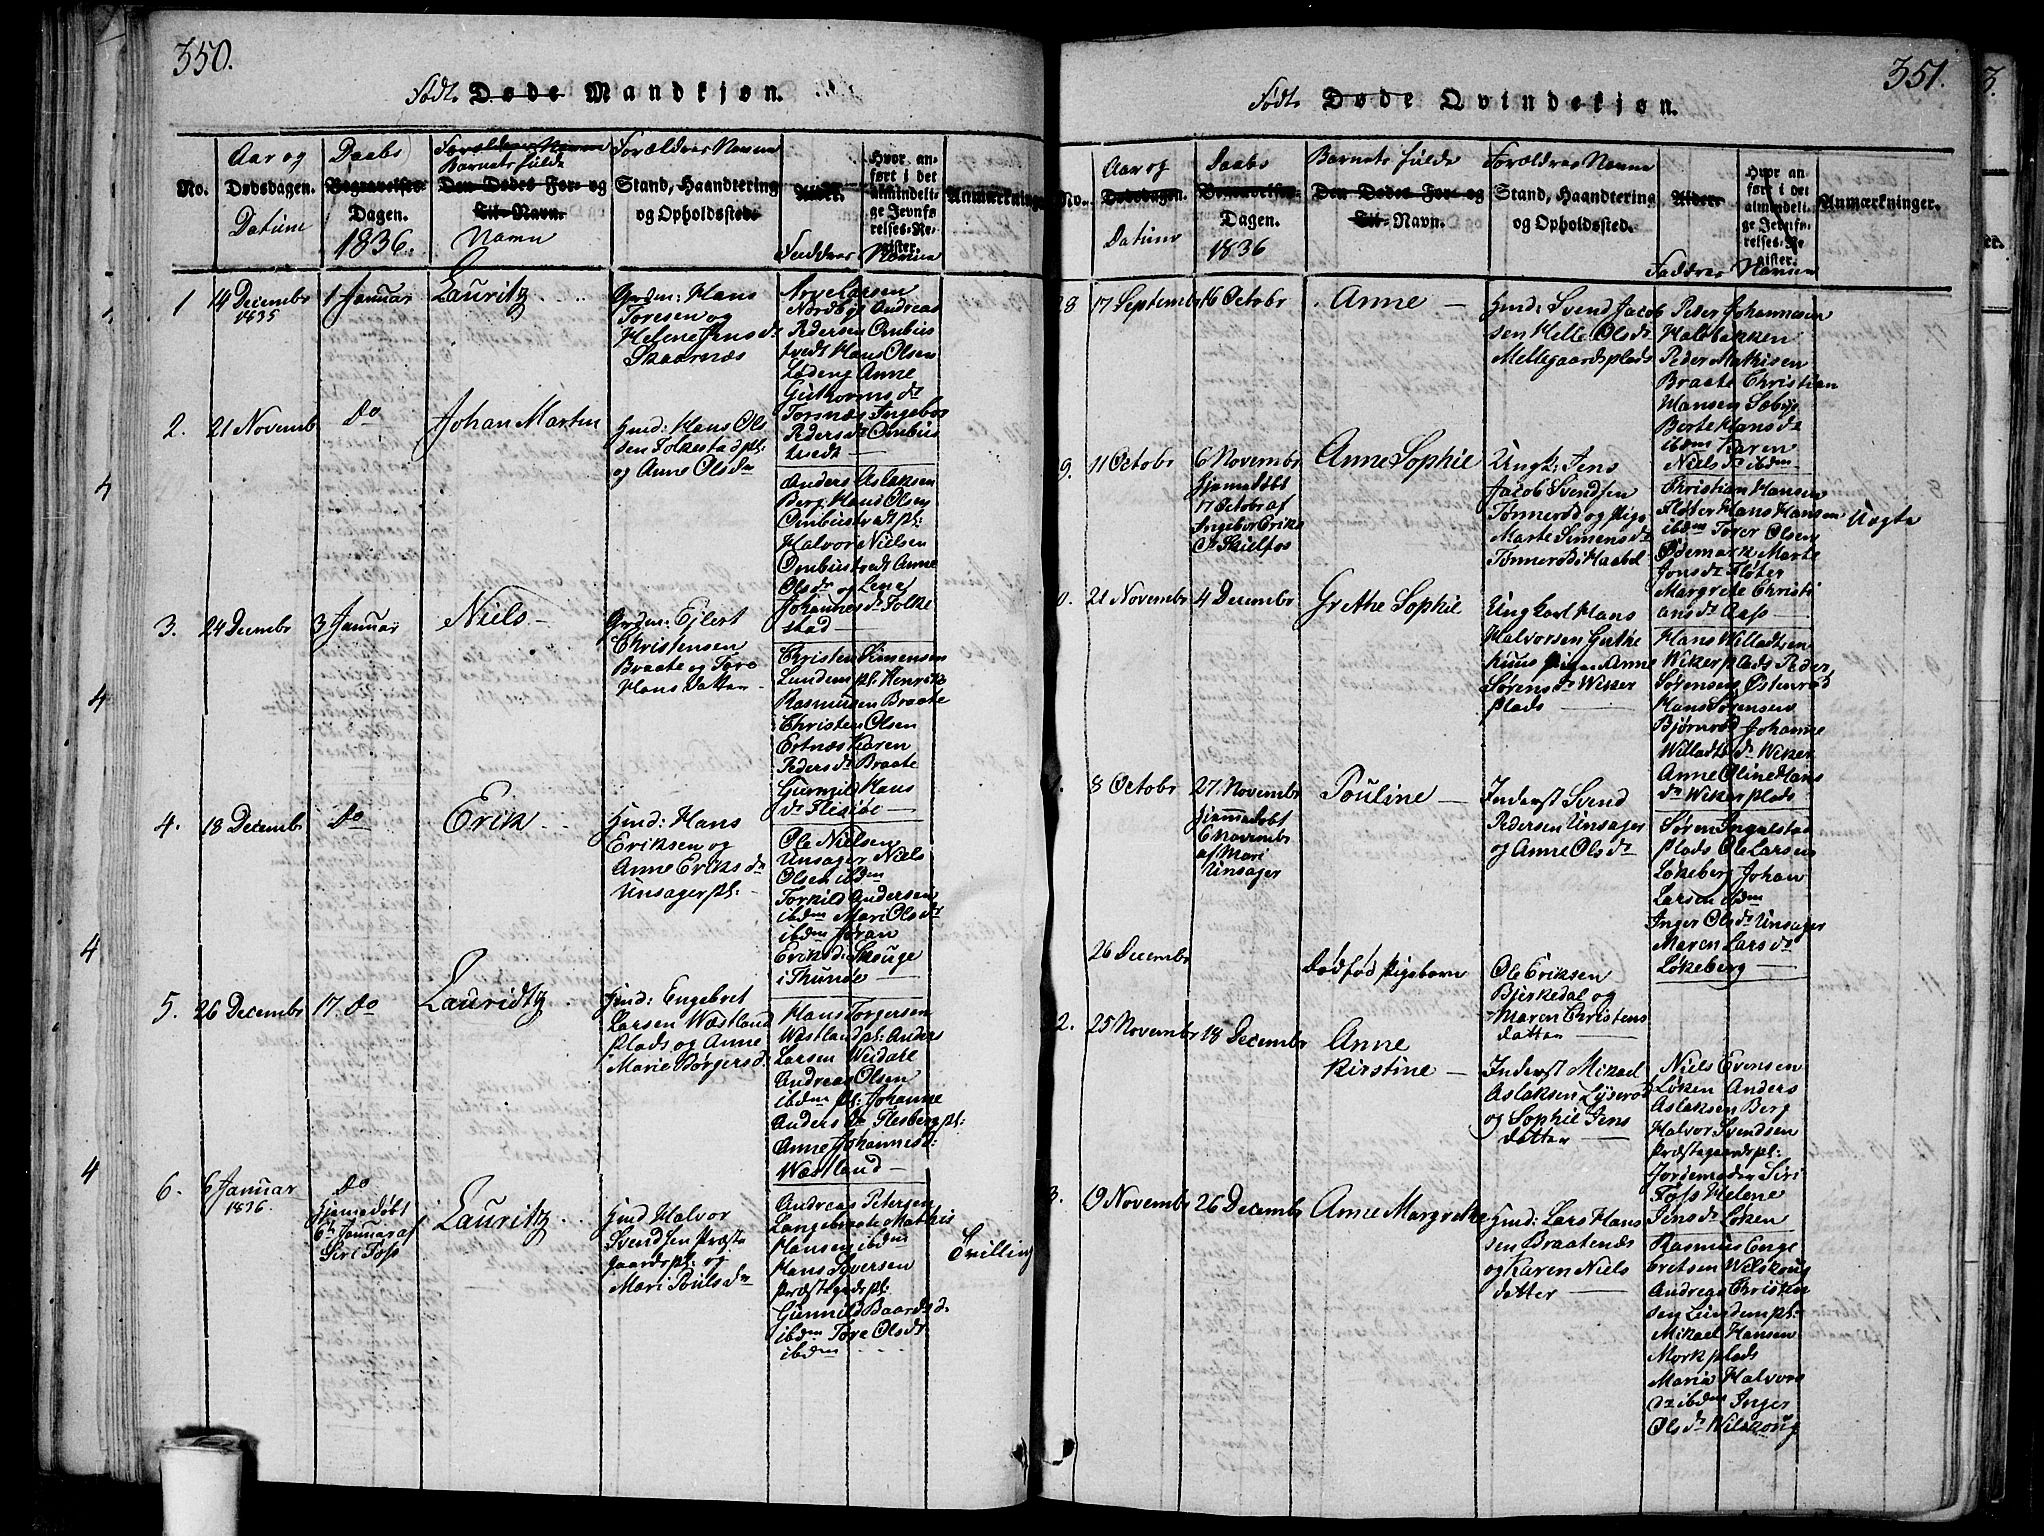 350.
Født Døde Mandkjøn.
No.
Aar og
Dødsdagen.
Datum
Daabs
Begravelses-
Dagen.
1836.
Barnets fulde
Den Dødes For- og
Til-Navn.
Navn
Forældres Navne
Stand, Haandtering
og Opholdssted
Alder.
Faddres Navne
Hvor an-
ført i det
almindeli-
ge Jevnfø-
relses-Re-
gister.
Anmærkninger
1
14 Decembr
1835
1 Januar
Lauritz
Grdm: Hans
Toresen og
Helene Jens dr
Skaarnæs
Arve Larsen
Nordbye Andreas
Pedersen Ombus
tvedt Hans Olsen
Lødeng Anne
Guthorms dr
Torsnæs Ingebor
Peders dr Ombus
tvedt
2.
21 Novemb
do
Johan Martin
Hmd: Hans Ol
sen Folkestad pl:
og Anne Ols dr
Anders Aslaksen
Berg Hans Olsen
Ombustvedt pl:
Halvor Nielsen
Ombustvedt Anne
Ols dr og Lene
Johannes dr Folke
stad
3.
24 Decmbr
3 Januar
Niels
Grdm: Ejlert
Christensen
Braate og Tore
Hans datter
Christen Simensen
Lundem pl: Henrik
Rasmusen Braate
Christen Olsen
Ertnæs Karen
Peders dr Braate
Gunnild Hans
dr Flesibe
4.
18 Decembr
do
Erik
Hmd: Hans
Eriksen og
Anne Eriks dr
Unsager pl:
Ole Nielsen
Unsager Niels
Olsen ibdm
Torkild Andersen
ibdm Mari Ols dr
ibdm Jøran
Eriks d: Skouge
i Thunøe
5.
26 Decembr
17. do
Lauridtz
Hmd: Engebret
Larsen Wæstland
plads og Anne
Marie Børgers d:
Hans Torgersen
Wæstland pl: Anders
Larsen Weidale
Andreas Olsen
ibdm pl: Johanne
Anders dr Flesberg pl:
Anne Johannis d:
Wæstland
6.
6 Januar
1836.
do
hjemmedøbt
6te Januar af
Siri Foss
Lauritz
Hmd Halvor
Svendsen Præste
gaards pl: og
Mari Pouls dr
Andreas Petersen
Langebraate Mathis
Hansen ibdm
Hans Syversen
Præstegaards pl:
Gunnild Baards d:
ibdm Tore Ols dr
ibdm
Tvilling
4
4
4
4
351.
Født Døde Qvindekjøn.
No.
Aar og
Dødsdagen.
Datum
Daabs
Begravelses-
Dagen.
1836
Barnets fulde
Den Dødes For- og
Til-Navn.
Forældres Navne
Stand, Haandtering
og Opholdssted.
Alder.
Faddres Navne
Hvor an-
ført i det
almindeli-
ge Jevnfø-
relses-Re-
gister.
Anmærkninger.
28
17 Septembr
16 Octobr
Anne
Hmd: Svend Jacob
sen Helle Ols dr
Mellegaards plads
Peter Johannesen
Holtbakken
Peder Mathisen
Braate Christian
Hansen Sæbye
Berte Hans dr
ibdm Karen
Niels dr ibdm
9.
11 Octobr
6 Novembr
hjemmedøbt
17 Octobr af
Ingebor Eriks
dr Skielfos
Anne Sophie
Ungk: Jens
Jacob Svendsen
Tønnerød og Pige
Marte Simens dr
Tønnerød i Haabøl
Christian Hansen
Fløter Hans Hansen
ibdm Torer Olsen
Ødemark Marte
Jons dr Fløter
Margrete Christi
ans dr Aass
Uægte
0.
21 Novembr
4 Decembr
Grethe Sophie
Ungkarl Hans
Halvorsen Grethe
huus Pigen Anne
Sørens dr Wiker
plads
Hans Willadsen
Wiker plads Peder
Sørensen Østenrød
Hans Sørensen
Bjørnrød Johanne
Willads dr Wiker
Anne Oline Hans
dr Wiker plads
8 Octobr
27. Novembr
hjemmedøbt
6 Novembr
af Mari
Unsager
Pouline
Inderst Svend
Pedersen Unsager
og Anne Ols dr
Søren Ingulstad
plads Ole Larsen
Løkeberg Johan
Larsen ibdm
Inger Ols dr Unsager
Maren Lars dr
Løkeberg
26 Decembr
dødfød Pigebarn
Ole Eriksen
Bjerkedal og
Maren Christens
datter
2.
25 Novembr
18 Decembr
Anne
Kirstine
Inderst Mikael
Aslaksen Lyserød
og Sophie Jens
datter
Niels Evensen
Løken Anders
Aslaksen Berg
Halvor Svendsen
Præstegaards pl:
Jordemoder Siri
Foss Helene
Jens dr Løken
3.
19 Novembr
26 Decembr
Anne Margrethe
Hmd: Lars Hans
sen Braatenæs
og Karen Niels
datter
Rasmus Enge
bretsen Wilskoug
Andreas Christen
sen Lundem pl:
Mikael Hansen
Mork plads
Maria Halvors
dr ibdm Inger
Ols dr Wilskoug